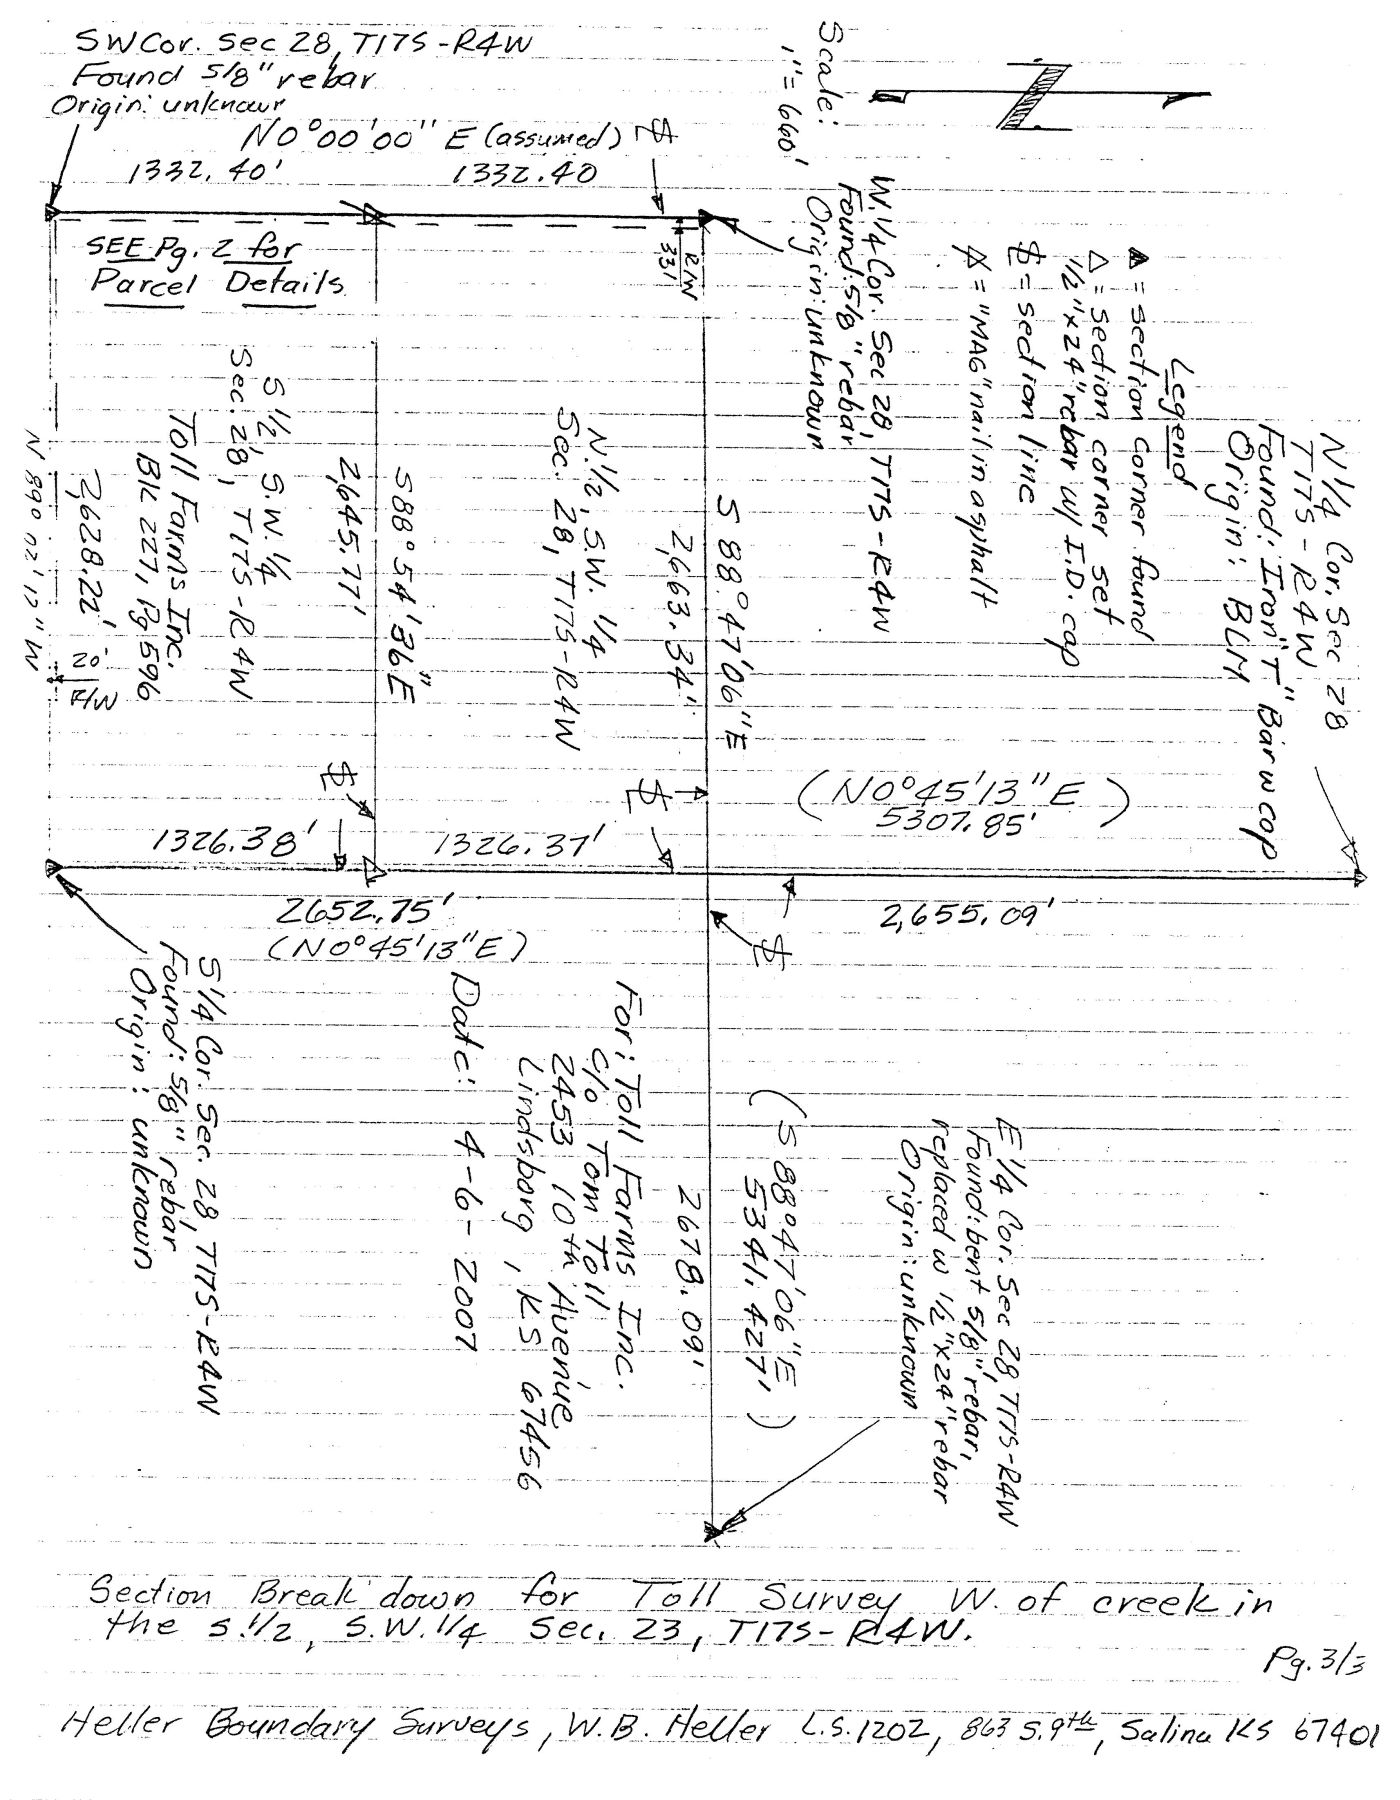 SW Cor. Sec 28, T17S-R4W
Found 5/8" rebar
Origin: unknown
N0°00'00" E (assumed)
1332.40'
1332.40
Scale:
1"=660'
SEE Pg. 2 for
Parcel Details
R/W
33'
W.1/4 Cor. Sec 28, T17S-R4W
Found: 5/8" rebar
Origin: unknown
Legend
▲ = section corner found
△ = section corner set
1/2"x24" rebar w/ I.D. cap
= section line
= "MAG" nail in asphalt
N 1/4 Cor. Sec 28
T17S-R4W
Found: Iron "T" Bar w cap
Origin: BLM
S 88°47'06" E
2,663.34'
N.1/2, S.W. 1/4
Sec. 28, T17S-R4W
S 88°54'36" E
2,645.77'
S 1/2, S.W. 1/4
Sec. 28, T17S-R4W
Toll Farms Inc.
Bk 227, Pg 596
2,628.22'
N 89° 02' 17" W
20'
R/W
(N0°45'13" E)
5307.85'
1326.38'
1326.37'
2652.75'
(N0°45'13" E)
2,655.09'
S 1/4 Cor. Sec. 28 T17S-R4W
Found: 5/8" rebar
Origin: unknown
For: Toll Farms Inc.
c/o Tom Toll
2453 10th Avenue
Lindsborg, KS 67456
Date: 4-6-2007
2678.09'
(S 88°47'06" E
5341.427')
E 1/4 Cor. Sec 28, T17S-R4W
Found: bent 5/8" rebar,
replaced w 1/2"x24" rebar
Origin: unknown
Section Break down for Toll Survey W. of creek in
the S.1/2, S.W.1/4 Sec. 23, T17S-R4W.
Pg. 3/3
Heller Boundary Surveys, W.B. Heller L.S.1202, 863 S.9th, Salina KS 67401